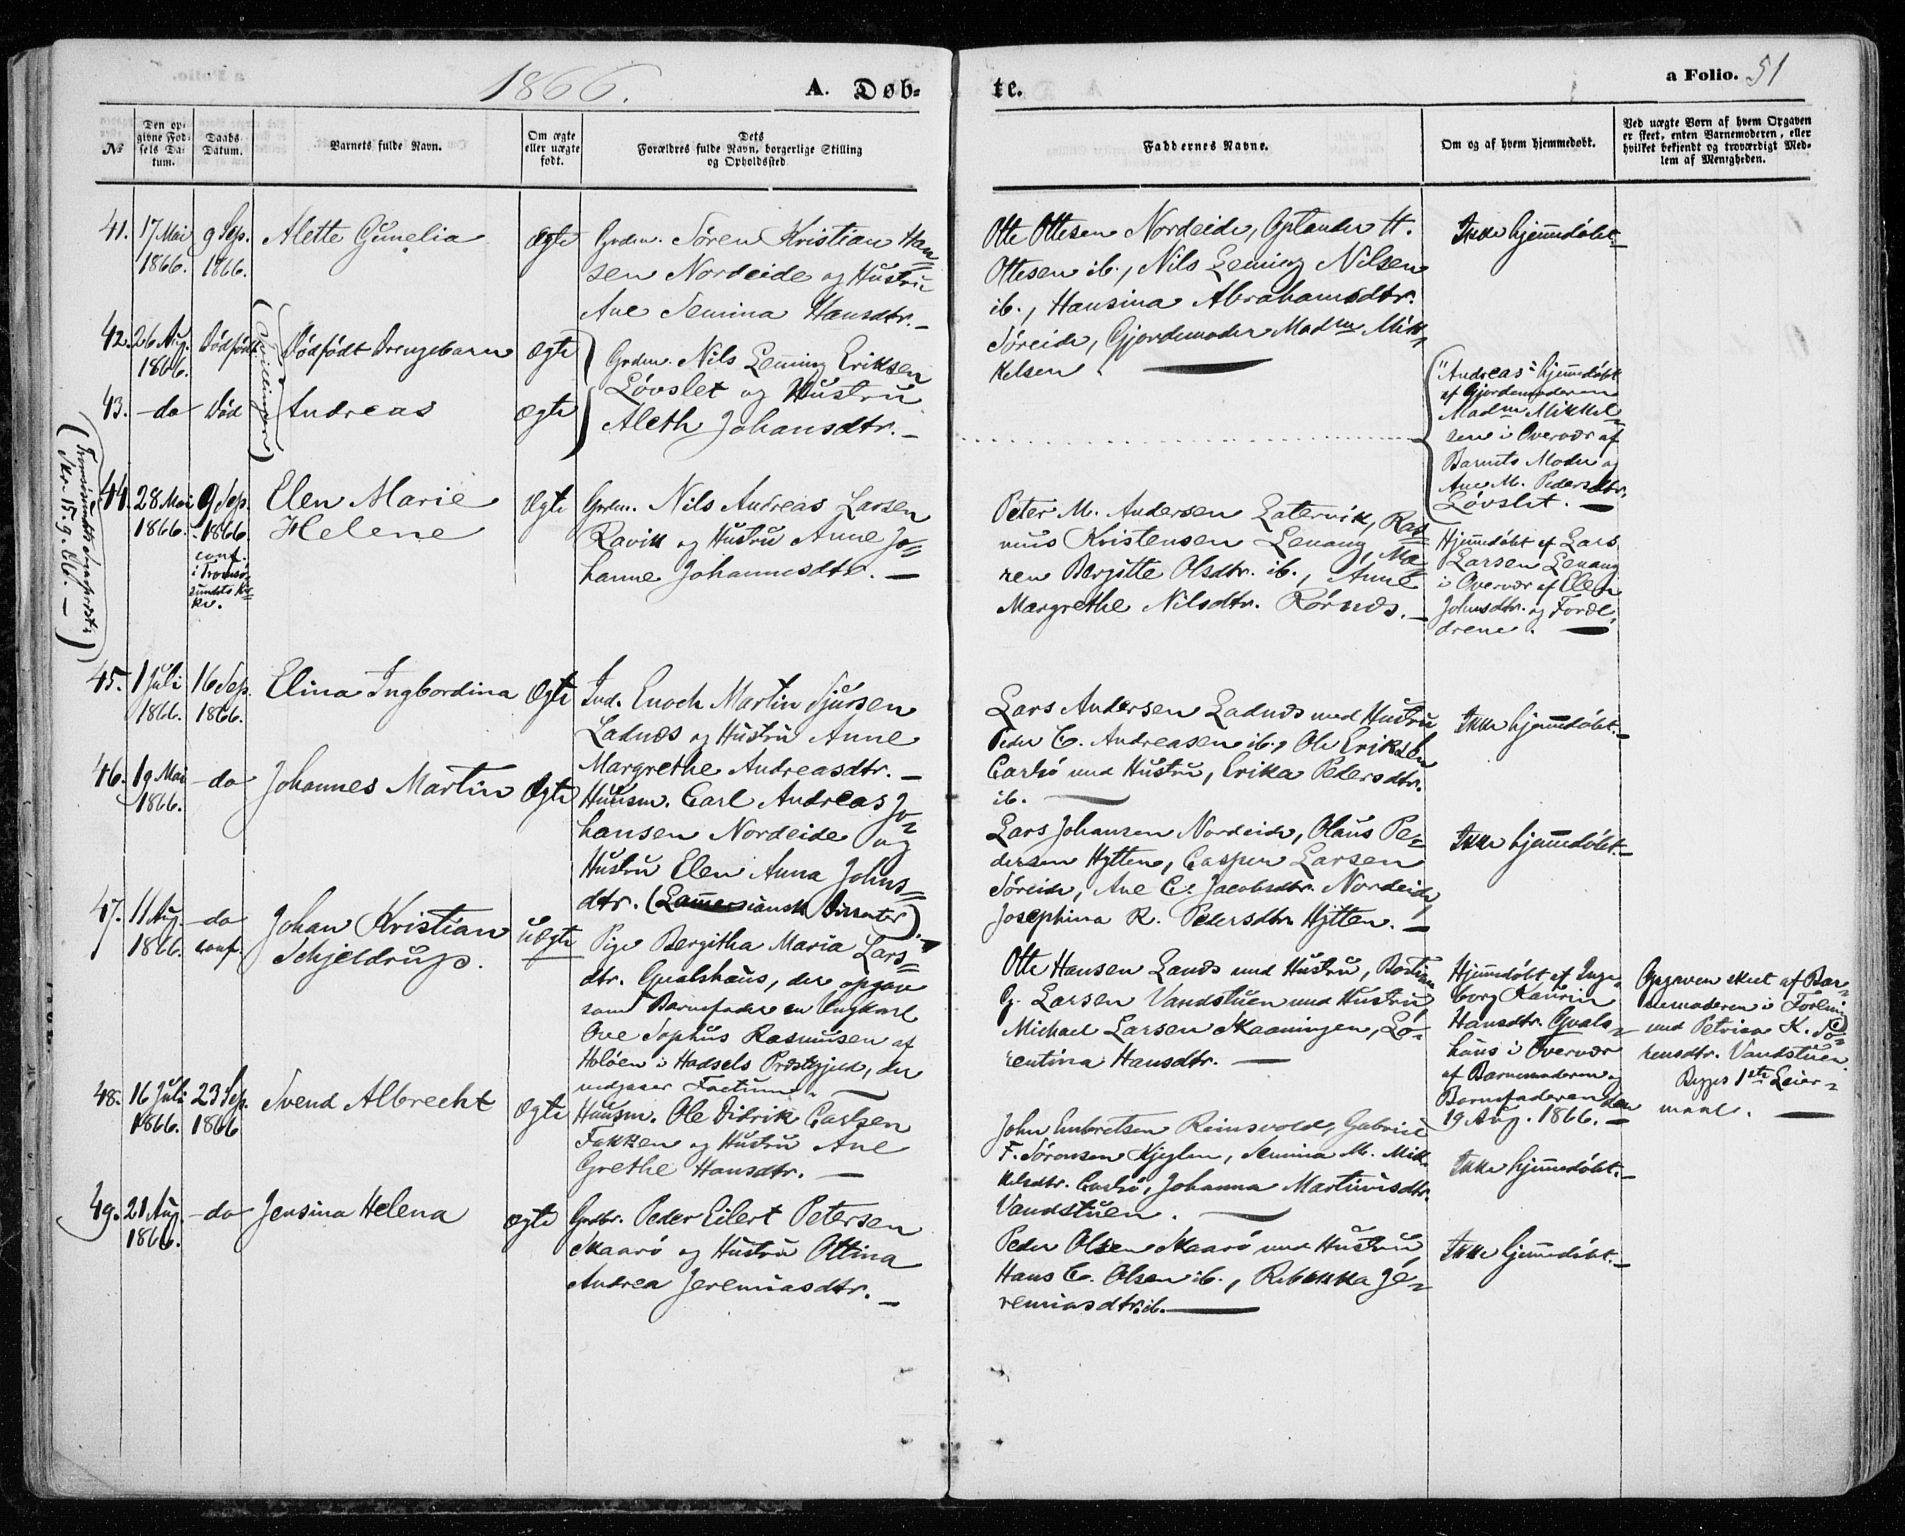 1866.
A. Døb-
te.
a Folio. 51
№
Den op-
givne Fød-
sels Da-
tum.
Daabs
Datum.
Barnets fulde Navn.
Om ægte
eller uægte
født.
Dets
Forældres fulde Navn, borgerlige Stilling
og Opholdssted.
Faddernes Navne.
Om og af hvem hjemmedøbt.
Ved uægte Børn af hvem Opgaven
er skeet, enten Barnemoderen, eller
hvilket bekjendt og troværdigt Med-
lem af Menigheden.
41.
17 Mai
1866.
9 Sep.
1866.
Alette Gunelia
Ægte
Grdm. Sören Kristian Han=
sen Nordeide og Hustru
Ane Nemina Hansdtr. —
Otte Ottesen Nordeide, H.
Ottesen ib., Nils Leming Nilsen
ib., Hansina Abrahamsdtr.
Söreide, Gjordemoder Madm Mik=
kelsen.
Ikke hjemmedöbt. —
42.
26 Aug.
1866.
Dödfödt
Dödfödt Drengebarn
Ægte
Grdm. Nils Leming Eriksen
Lövslet og Hustru
Aleth Johansdtr. —
(Tvillinger)
43.
— do
Död
Andreas
Ægte
"Andreas" hjemmedöbt
af Gjordemoderen
Madm Mikkel=
sen i Overvær af
Barnets Moder og
Ane M. Pedersdtr.
Lövslet. —
44.
(Tromsösundets
Skr. 15-9-66. —)
28 Mai
1866.
9 Sep.
1866
conf.
i Tromsö-
sundets Kir-
ke.
Elen Marie
Helene
Ægte
Grdm. Nils Andreas Larsen
Ravik og Hustru Anne Jo=
hanne Johannesdtr. —
Peter M. Andersen Latervik, Ras=
mus Kristensen Lenang, Ma=
ren Bergitte Olsdtr. ib., Anne
Margrethe Nilsdtr. Rörnæs. —
Hjemmedöbt af Lars
Larsen Lenang
i Overvær af Elen
Johnsdtr. og Foræl=
drene. —
45.
1 Juli
1866.
16 Sep.
1866.
Elina Ingbordina
Ægte
Ind. Enoch Martin Sjursen
Ladnæs og Hustru Anne
Margrethe Andreasdtr. —
Lars Andersen Ladnæs med Hustru
Peder C. Andreasen ib., Ole Eriksen
Carlsö med Hustru, Erika Pedersdtr.
ib. —
Ikke hjemmedöbt. —
46.
19 Mai
1866.
— do
Johannes Martin
Ægte
Huusm. Carl Andreas Jo=
hansen Nordeide og
Hustru Elen Anna Johns=
dtr. (Lammersiansk Dissenter).
Lars Johansen Nordeide, Olaus Pe=
dersen Hytten, Casper Larsen
Söreide, Ane C. Jacobsdtr. Nordeide,
Josephina R. Pedersdtr. Hytten. —
Ikke hjemmedöbt. —
47.
11 Aug.
1866.
— do
conf.
Johan Kristian
Schjeldrup.
uægte
Pige Bergitha Maria Lars=
dtr. Gvalshaus, der opgav
som Barnefader en Ungkarl
Ove Sophus Rasmusen af
Holöen i Hadsels Præstegjeld, der
vedgaaer Factum. —
Otte Hansen Lanæs med Hustru, Bastian
G. Larsen Vandstuen med Hustru,
Michael Larsen Skaaningen, Lo=
rentina Hansdtr. —
Hjemmedöbt af Inge=
borg Kanrin
Hansdtr. Gvals=
haus i Overvær
af Barnemoderen og
Barnefaderen den
19 Aug. 1866. —
Opgaven skeet af Bar=
nemoderen i Forening
med Petrine K. So=
rensdtr. Vandstuen.
Begges 1ste Leier=
maal. —
48.
16 Juli
1866.
23 Sep.
1866
Svend Albrecht
Ægte
Huusm. Ole Didrik Carlsen
Fakken og Hustru Ane
Grethe Hansdtr. —
John Embretsen Reinsvold, Gabriel
F. Sörensen Kjeglen, Nemina M. Mik=
kelsdtr. Carlsö, Johanna Martinusdtr.
Vandstuen. —
Ikke hjemmedöbt. —
49.
21 Aug.
1866.
— do
Jensina Helena
Ægte
Grdbr. Peder Eilert Petersen
Skaarö og Hustru Ottina
Andrea Jeremiasdtr. —
Peder Olsen Skaarö med Hustru,
Hans C. Olsen ib., Rebekka Je=
remiasdtr. ib. —
Ikke hjemmedöbt. —